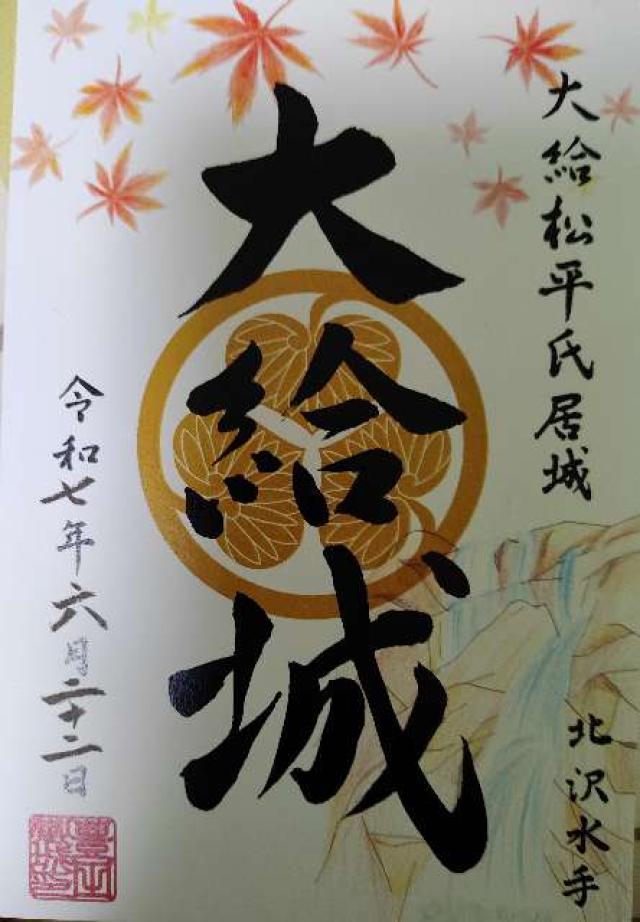 大給松平氏居城
大給城
北沢水手
令和七年六月二十二日